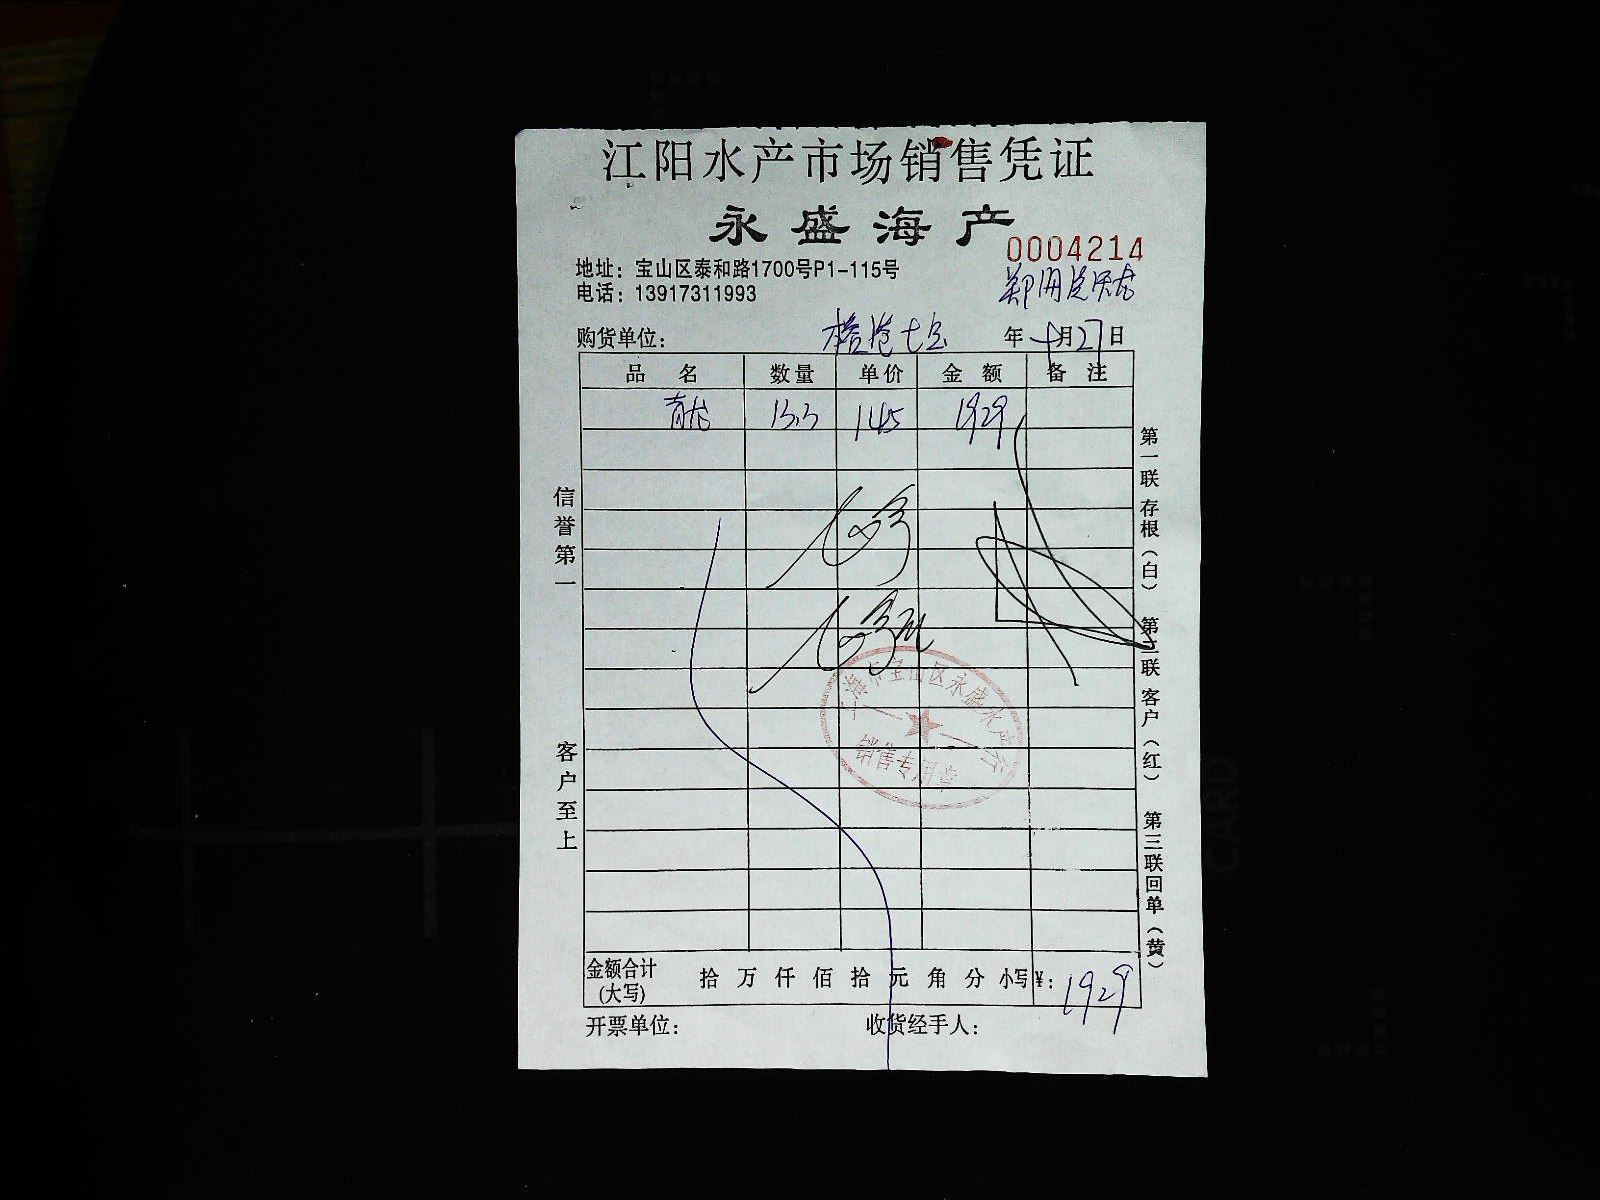 江阳水产市场销售凭证
永盛海产
0004214
地址：宝山区泰和路1700号P1-115号
电话：13917311993
购货单位： 年 月27日
品名 数量 单价 金额 备注
青龙 13.3 145 1929
信誉第一
客户至上
第一联 存根（白） 第二联 客户（红） 第三联 回单（黄）
上海市宝山区永盛水产行
销售专用章
金额合计 拾 万 仟 佰 拾 元 角 分 小写¥：1929
(大写)
开票单位： 收货经手人：